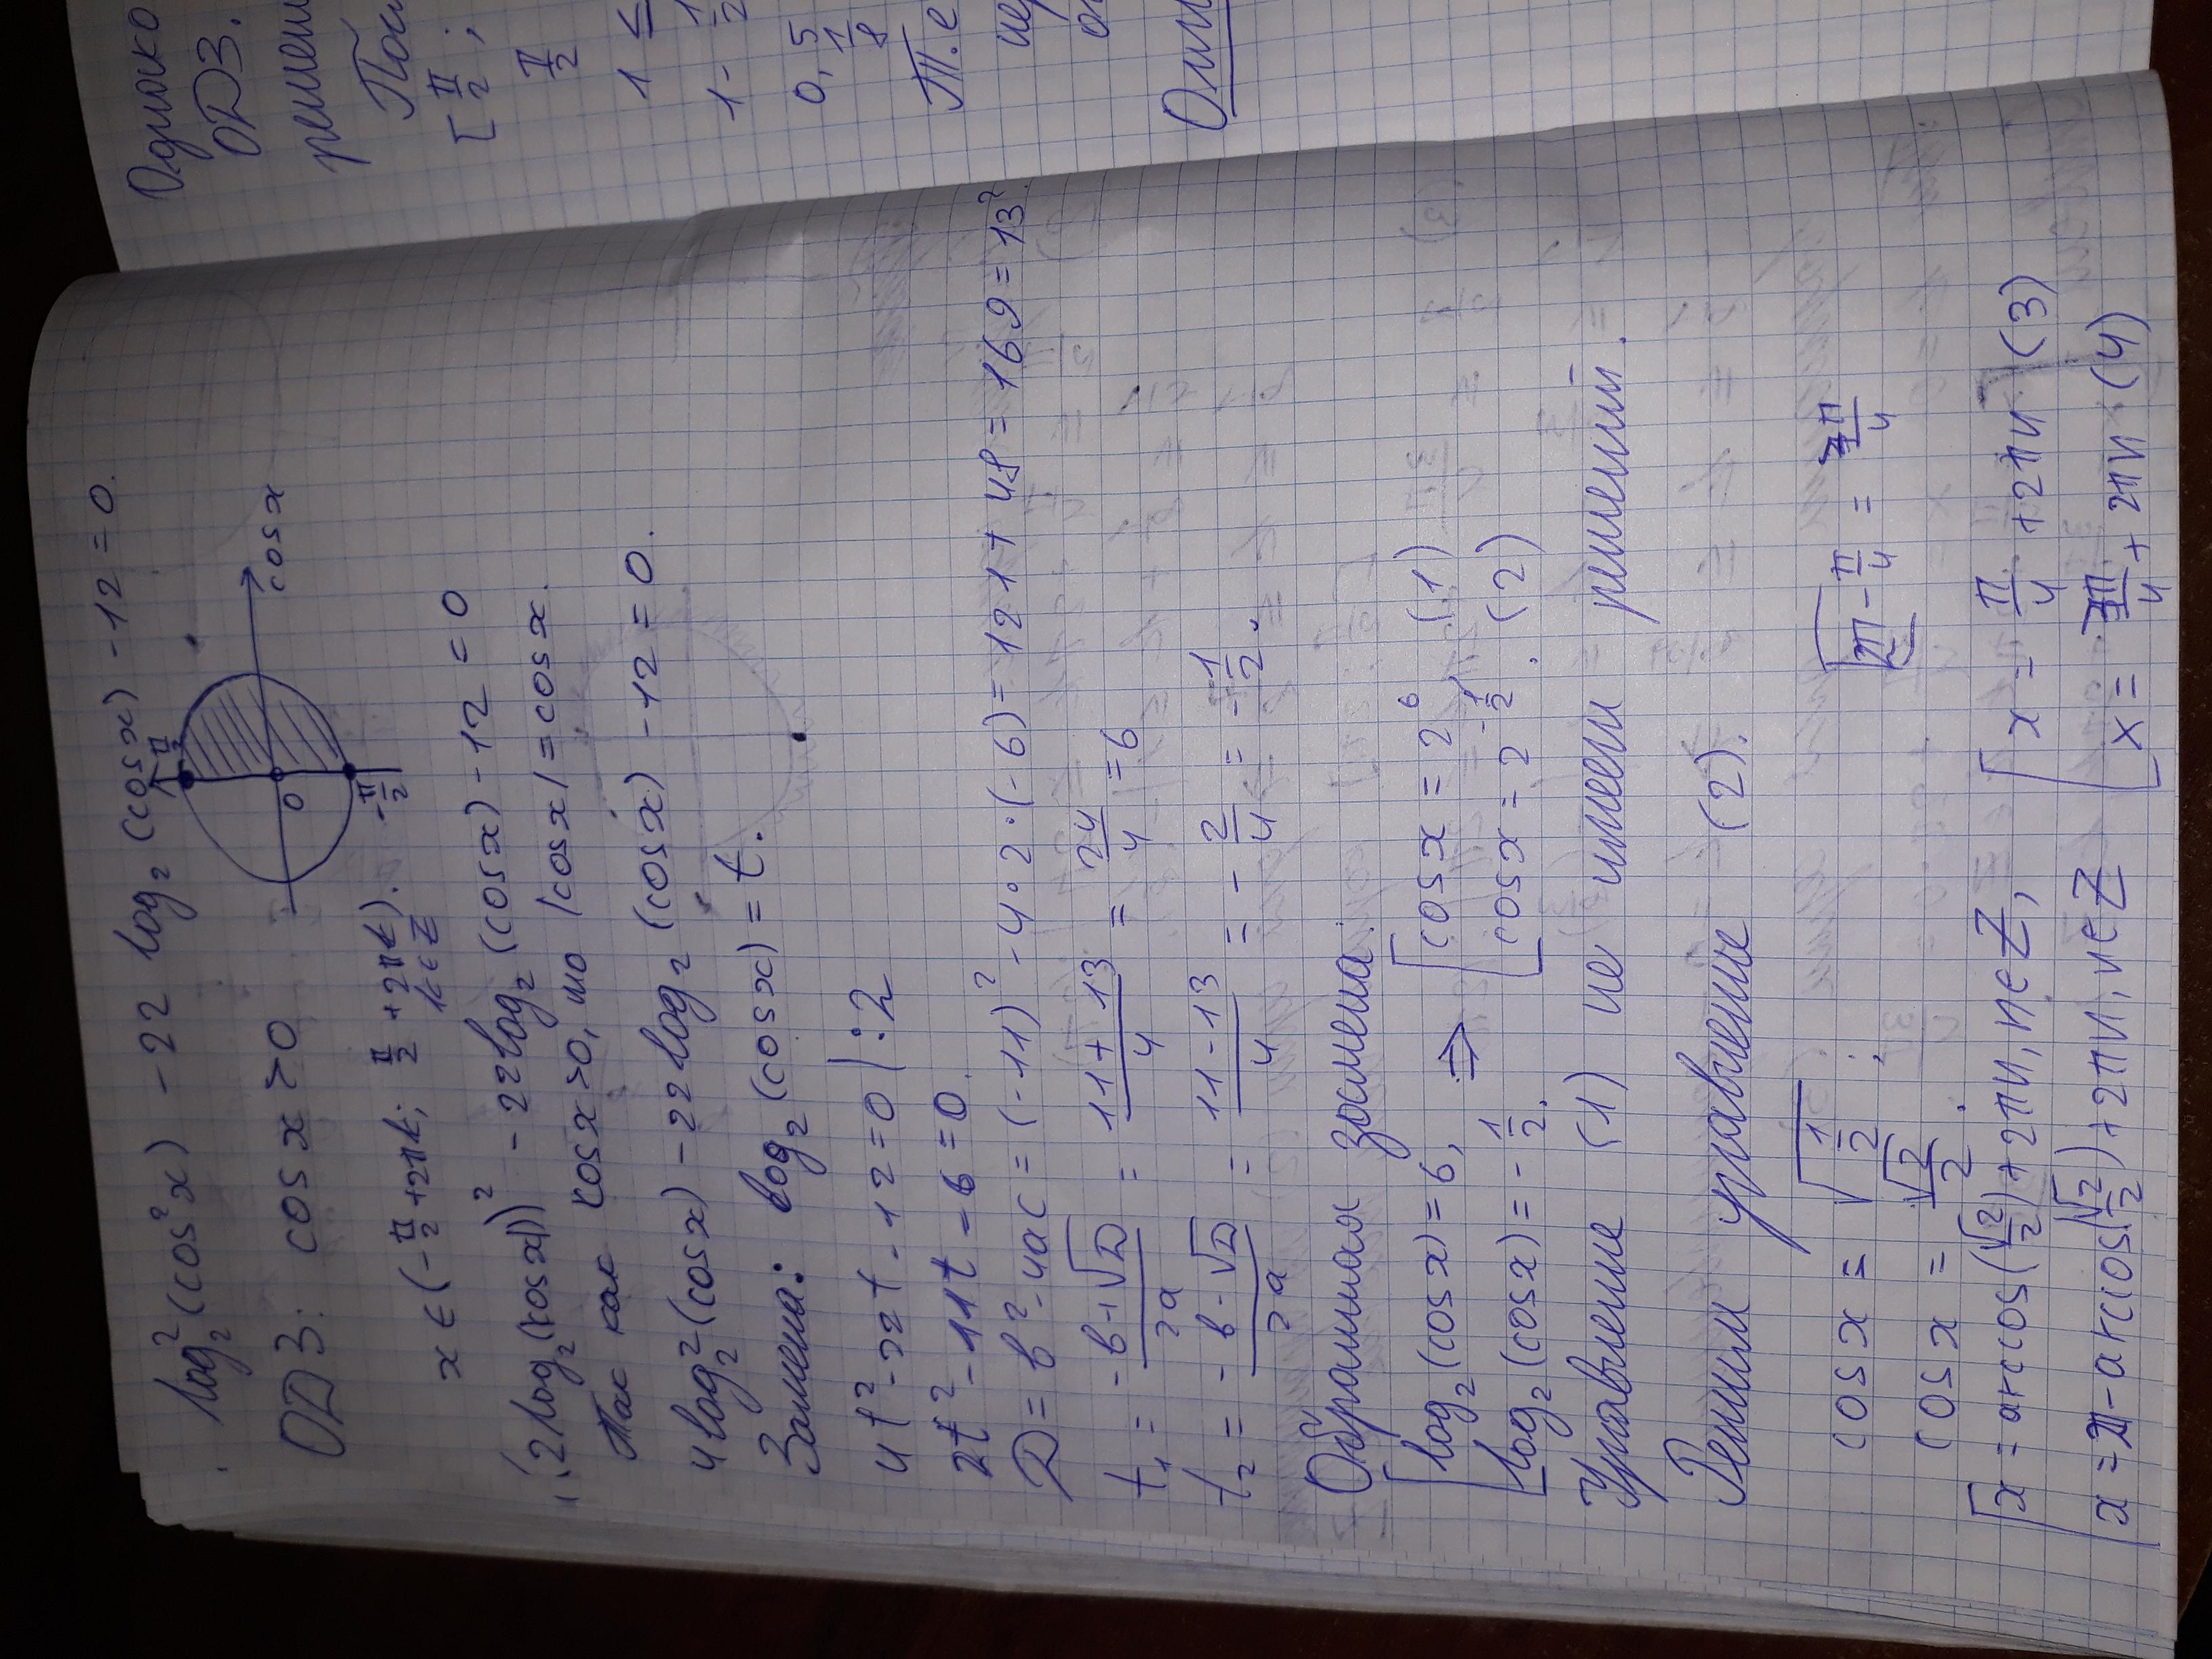 log₂²(cos²x) - 22 log₂(cosx) - 12 = 0.
ОДЗ: cosx > 0
π/2
0
cosx
-π/2
x ∈ (-π/2 + 2πk; π/2 + 2πk).
k ∈ Z
(2log₂(|cosx|))² - 22log₂(cosx) - 12 = 0
Так как cosx > 0, то |cosx| = cosx.
4log₂²(cosx) - 22log₂(cosx) - 12 = 0.
Замена: log₂(cosx) = t.
4t² - 22t - 12 = 0 | :2
2t² - 11t - 6 = 0.
D = b² - 4ac = (-11)² - 4·2·(-6) = 121 + 48 = 169 = 13²
t₁ = (-b + √D)/2a = (11 + 13)/4 = 24/4 = 6
t₂ = (-b - √D)/2a = (11 - 13)/4 = -2/4 = -1/2.
Обратная замена:
[log₂(cosx) = 6, ⇒ [cosx = 2⁶ (1)
[log₂(cosx) = -1/2. [cosx = 2^(-1/2). (2)
Уравнение (1) не имеет решений.
Решим уравнение (2).
cosx = √(1/2);
cosx = √2/2.
- π/4 =
[x = arccos(√2/2) + 2πn, n ∈ Z, [x = π/4 + 2πn (3)
[x = - arccos(√2/2) + 2πn, n ∈ Z [x = + 2πn (4)
Однако
ОДЗ.
решен
[π/2;
π/2
1 ≤
0,5
1/8
Т.е